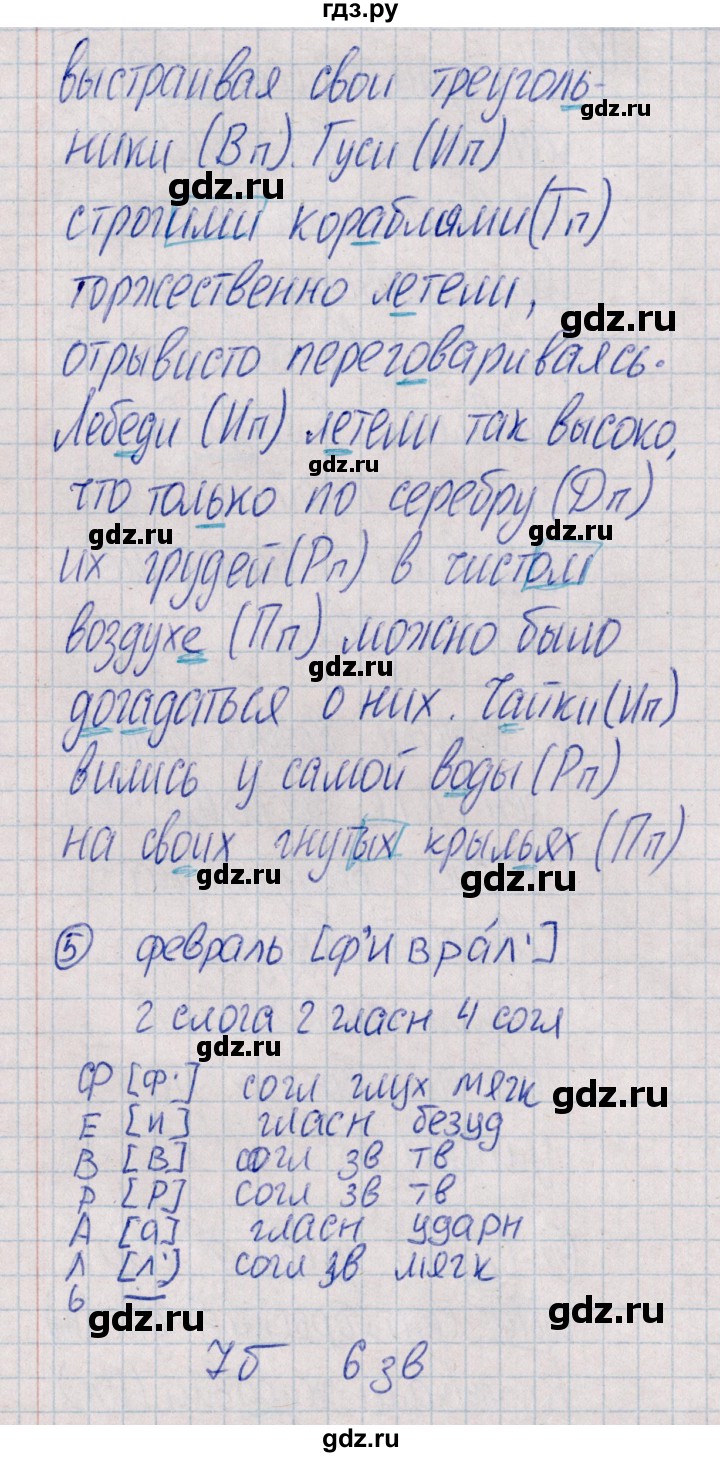 гдз.ру
выстраивая свои треуголь-
ники (Вп). Гуси (Ип)
gdz.ru
строгими кораблями (Тп)
торжественно летели,
gdz.ru
отрывисто переговариваясь.
Лебеди (Ип) летели так высоко,
gdz.ru
что только по серебру (Дп)
gdz.ru
gdz.ru
их грудей (Рп) в чистом
воздухе (Пп) можно было
gdz.ru
догадаться о них. Чайки (Ип)
вились у самой воды (Рп)
на своих гнутых крыльях (Пп)
gdz.ru
gdz.ru
5 февраль [ф'иврáл']
2 слога 2 гласн 4 согл
gdz.ru
Ф [ф'] согл глух мягк
gdz.ru
Е [и] гласн безуд
В [в] согл зв тв
Р [р] согл зв тв
А [а] гласн ударн
Л [л') согл зв мягк
ь —
gdz.ru
gdz.ru
7б 6 зв
gdz.ru
gdz.ru